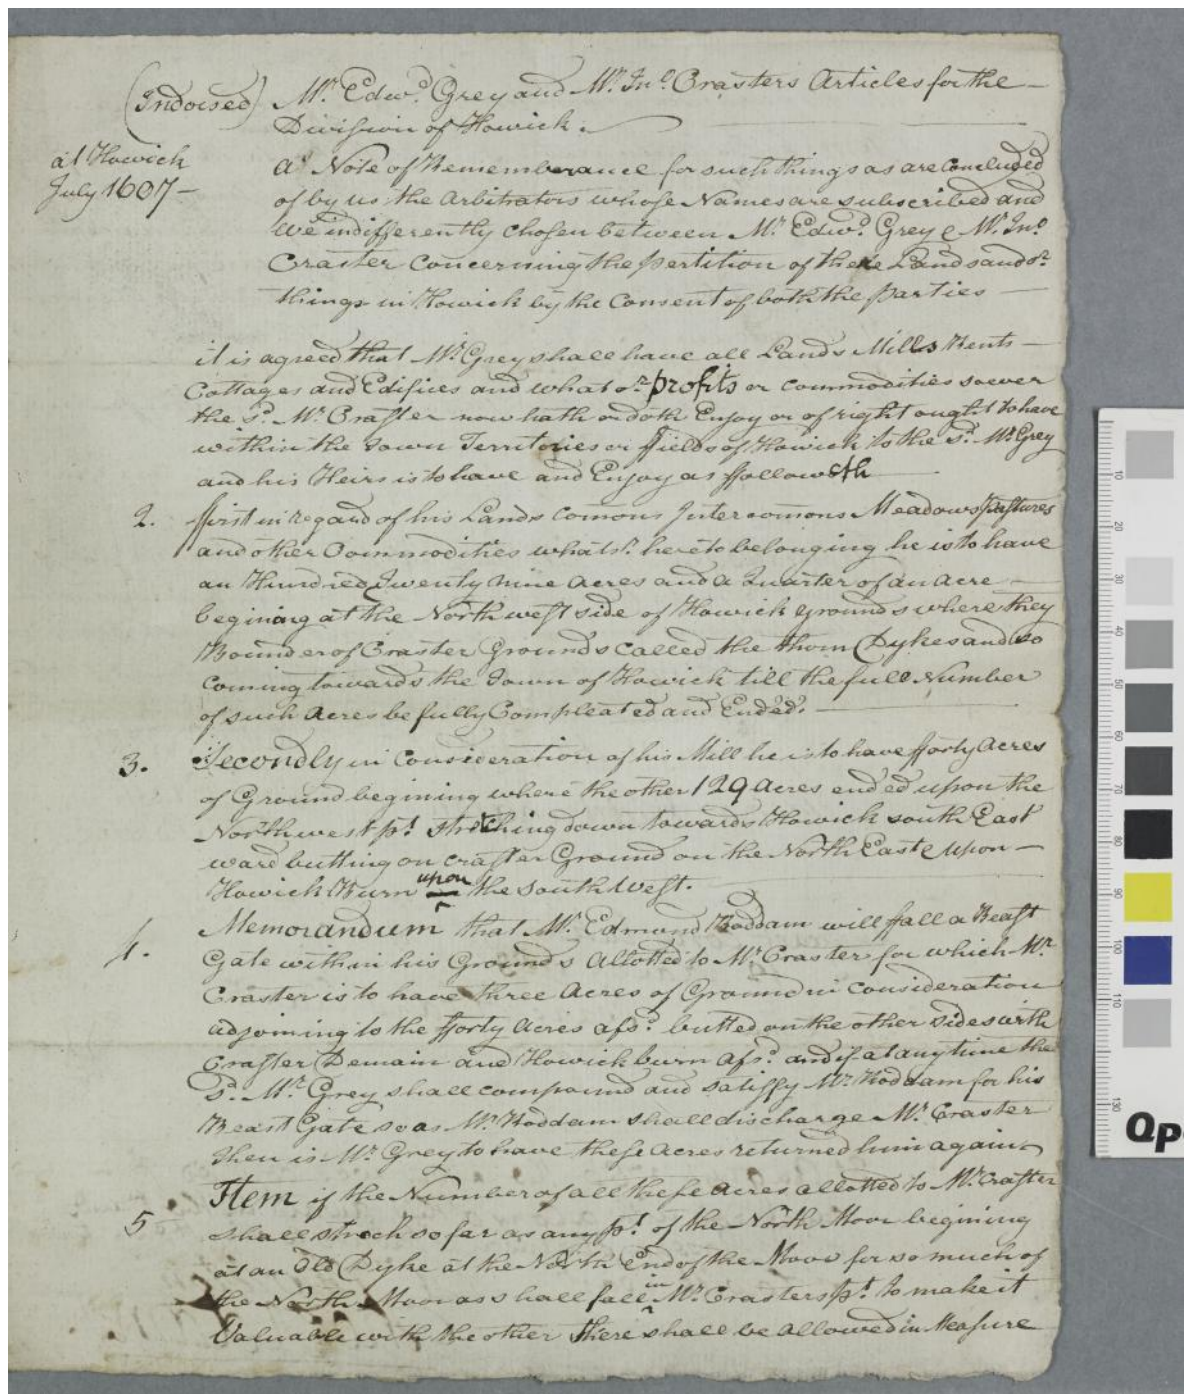 (Indorsed) Mr. Edwd. Grey and Mr. Jno. Crasters Articles for the
Division of Howick.
at Howick
July 1607
A Note of Rememberance for such things as are Concluded
of by us the Arbitrators whose Names are subscribed and
we indifferently chosen between Mr. Edwd. Grey & Mr. Jno.
Craster Concerning the partition of there Lands and or.
things in Howick by the Consent of both the parties
it is agreed that Mr. Grey shall have all Lands Mills Rents
Cottages and Edifices and what or. profits or commodities soever
the sd. Mr. Craster now hath or doth Enjoy or of right ought to have
within the Town Territories or ffields of Howick to the sd. Mr. Grey
and his Heirs is to have and Enjoy as ffolloweth
2. ffirst in regard of his Lands comons Intercomons Meadows pastures
and other Commodities whatsr. hereto belonging he is to have
an Hundred Twenty nine Acres and a Quarter of an Acre
begining at the North west side of Howick grounds where they
Bounder of Craster Grounds called the thorn Dykes and so
coming towards the Town of Howick till the full Number
of such Acres be fully Compleated and Ended.
3. Secondly in Consideration of his Mill he is to have fforty Acres
of Ground begining where the other 129 Acres ended upon the
North west pt. stretching down towards Howick south East
ward butting on craster Ground on the North East & upon
Howick Burn upon the south West.
4. Memorandum that Mr. Edmund Roddam will fall a Beast
Gate within his Grounds Allotted to Mr. Craster for which Mr.
Craster is to have three Acres of Ground in consideration
adjoining to the fforty Acres afsd. butted on the other sides with
Craster Demain and Howick burn afsd. and if at any time the
sd. Mr. Grey shall compound and satisfy Mr. Roddam for his
Beast Gate so as Mr. Roddam shall discharge Mr. Craster
then is Mr. Grey to have these Acres returned him again
5 Item if the Number of all these Acres allotted to Mr. Craster
shall strech so far as any pt. of the North Moor begining
at an Old Dyke at the North End of the Moor for so much of
the North Moor as shall fall in Mr. Crasters pt. to make it
Valuable with the other there shall be allowed in Measure